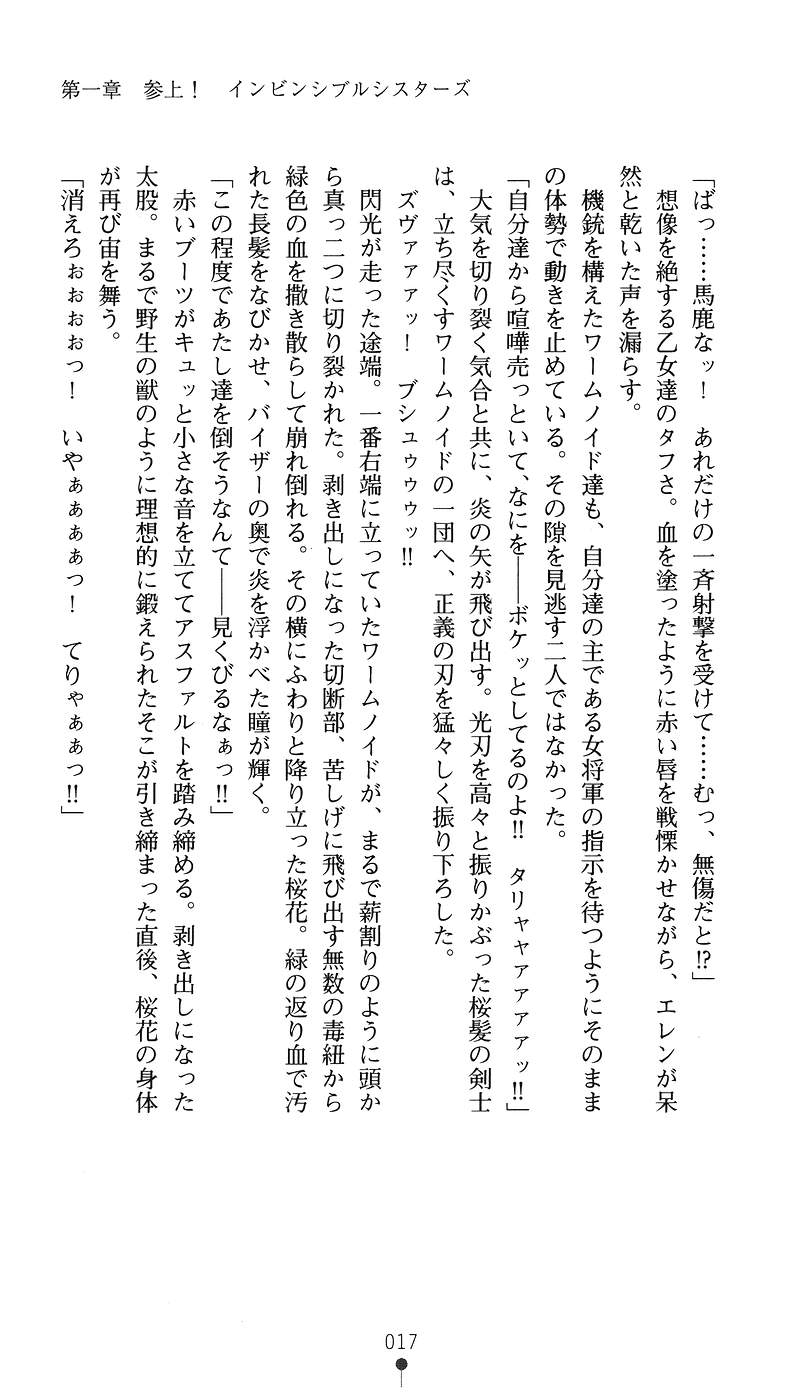 第一章　参上！　インビンシブルシスターズ
「ばっ……馬鹿なッ！　あれだけの一斉射撃を受けて……むっ、無傷だと!?」
　想像を絶する乙女達のタフさ。血を塗ったように赤い唇を戦慄かせながら、エレンが呆
然と乾いた声を漏らす。
　機銃を構えたワームノイド達も、自分達の主である女将軍の指示を待つようにそのまま
の体勢で動きを止めている。その隙を見逃す二人ではなかった。
「自分達から喧嘩売っといて、なにを――ボケッとしてるのよ!!　タリャャァァァァッ!!」
　大気を切り裂く気合と共に、炎の矢が飛び出す。光刃を高々と振りかぶった桜髪の剣士
は、立ち尽くすワームノイドの一団へ、正義の刃を猛々しく振り下ろした。
　ズヴァァァッ！　ブシュゥゥゥッ!!
　閃光が走った途端。一番右端に立っていたワームノイドが、まるで薪割りのように頭か
ら真っ二つに切り裂かれた。剥き出しになった切断部、苦しげに飛び出す無数の毒紐から
緑色の血を撒き散らして崩れ倒れる。その横にふわりと降り立った桜花。緑の返り血で汚
れた長髪をなびかせ、バイザーの奥で炎を浮かべた瞳が輝く。
「この程度であたし達を倒そうなんて――見くびるなぁっ!!」
　赤いブーツがキュッと小さな音を立ててアスファルトを踏み締める。剥き出しになった
太股。まるで野生の獣のように理想的に鍛えられたそこが引き締まった直後、桜花の身体
が再び宙を舞う。
「消えろぉぉぉぉっ！　いやぁぁぁぁっ！　てりゃぁぁっ!!」
017